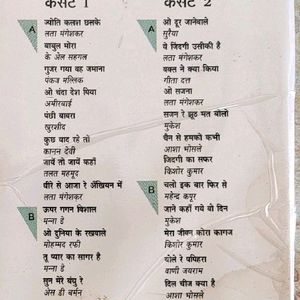 कैसेट 1
A
ज्योति कलश छलके
लता मंगेशकर
बाबुल मोरा
के एल सहगल
गुजर गया वह जमाना
पंकज मल्लिक
ओ चंदा देश पिया
अमीरबाई
पंछी बावरा
खुरशीद
कुछ याद रहे तो
कानन देवी
जायें तो जायें कहाँ
तलत महमूद
धीरे से आजा रे अँखियन में
लता मंगेशकर
B
ऊपर गगन विशाल
मन्ना डे
ओ दुनिया के रखवाले
मोहम्मद रफी
तू प्यार का सागर है
मन्ना डे
सुन मेरे बंधु रे
एस डी बर्मन
कैसेट 2
A
ओ दूर जानेवाले
सुरैया
ये जिंदगी उसीकी है
लता मंगेशकर
वक्त ने क्या किया
गीता दत्त
ओ सजना
लता मंगेशकर
सजन रे झूठ मत बोलो
मुकेश
चैन से हमको कभी
आशा भोसले
जिंदगी का सफर
किशोर कुमार
B
चलो इक बार फिर से
महेन्द्र कपूर
जाने कहाँ गये वो दिन
मुकेश
मेरा जीवन कोरा कागज
किशोर कुमार
बोले रे पपिहरा
वाणी जयराम
दिल चीज क्या है
आशा भोसले